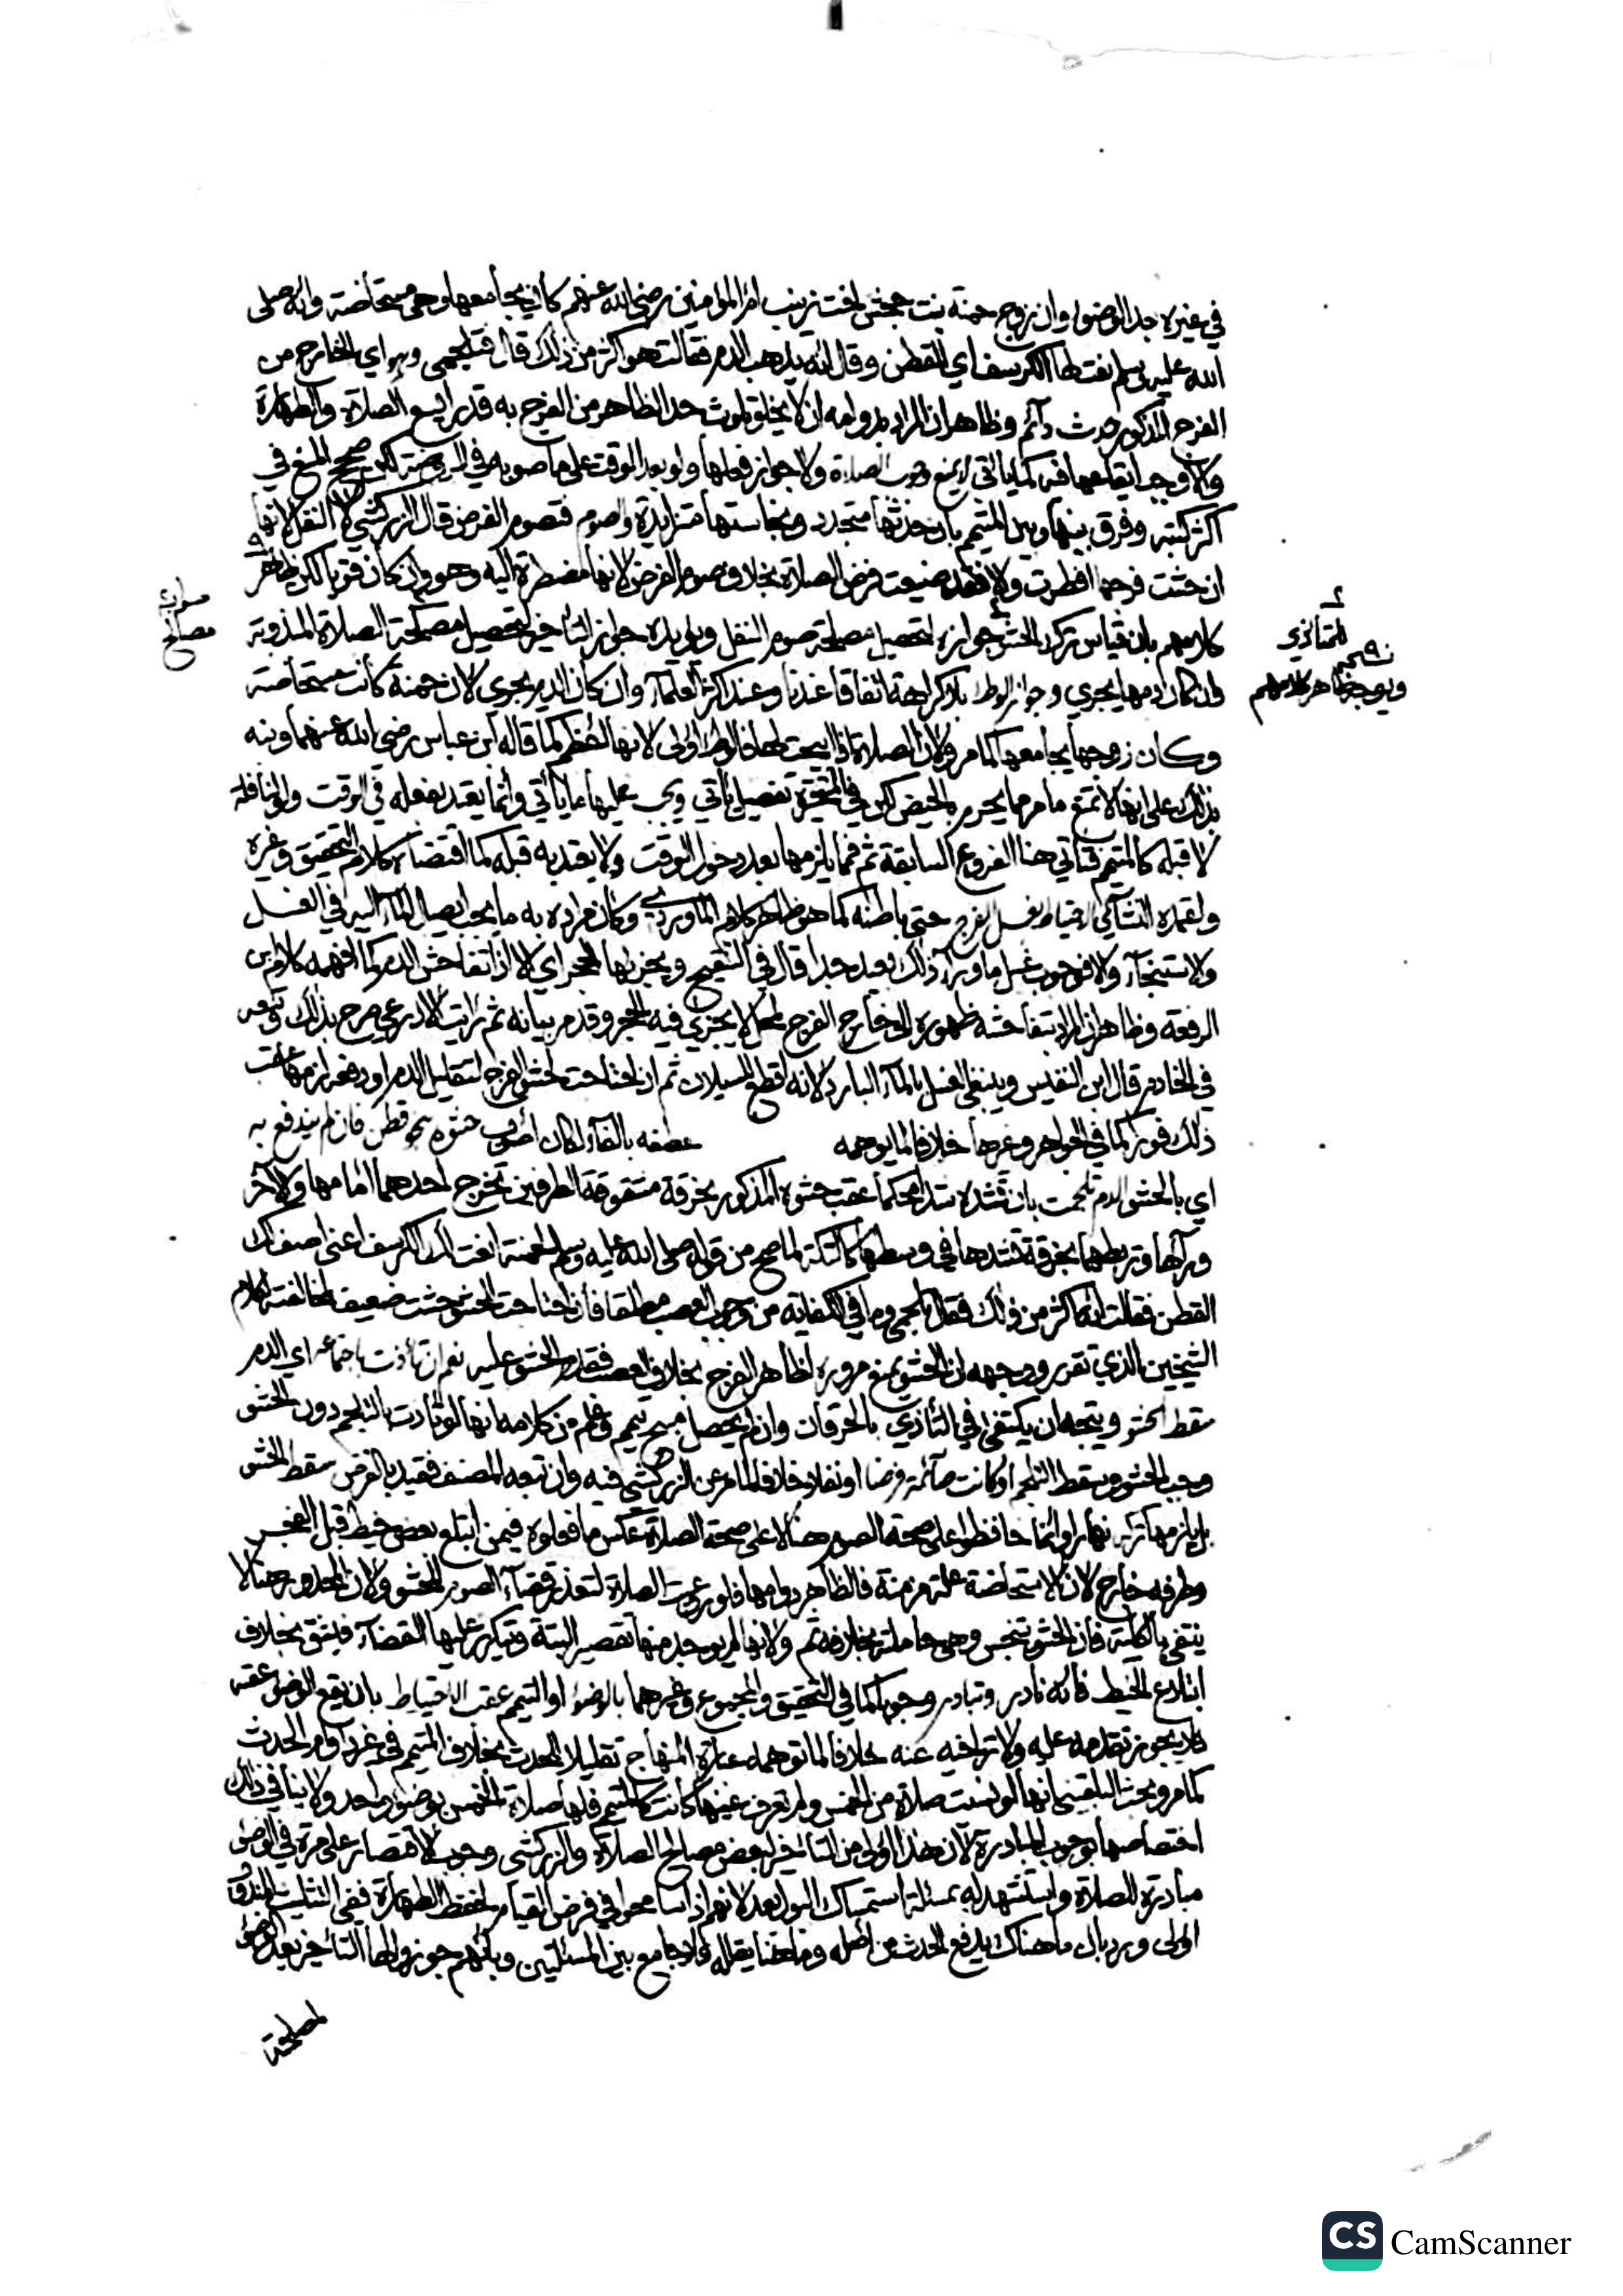 في غيره جدد الوضوء وان زوج حمنة بنت جحش اخت زينب ام المؤمنين رضي الله عنهم كان يجامعها وهي مستحاضة وانه صلى
الله عليه وسلم نعت لها الكرسف اي القطن وقال انه يذهب الدم فقالت هو اكثر من ذلك قال فتلجمي وهو اي الخارج من
الفرج المذكور حدث دائم وظاهر ان المراد بدوامه ان لا يخلو حد الظاهر من الفرج به قدر ايسع الصلاة والطهارة
والاوجه ايقاعها فيه كما ياتي لا يمنع وجوب الصلاة ولا جواز فعلها ولو بعد الوقت على ما صوبه في الروضة لكن صحح في
اكثر كتبه وفرق بينها وبين المتيمم بان حدثها متجدد ونجاستها متزايدة والصوم فتصوم الفرض قال الزركشي لا النفل لانها
ان حشت فرجها افطرت والا فقد ضيعت فرض الصلاة بخلاف صوم الفرض لانها مضطرة اليه وهو وان كان قويا لكن ظاهر
كلامهم بان قياس ترك الحشو جوازه لتحصيل مصلحة صوم النفل ويؤيده جواز التاخير لتحصيل مصلحة الصلاة المندوبة
وان كان دمها يجري وجواز الوطء بلا كراهة اتفاقا عندنا وعند اكثر العلماء وان كان الدم يجري لان حمنة كانت مستحاضة
وكان زوجها يجامعها كما مر ولان الصلاة اذا ابيحت لها فالوطء اولى لانها اعظم كما قاله ابن عباس رضي الله عنهما ونبه
بذلك على انها لا تمنع ما مر مما يحرم بالحيض لكن في المتحيرة تفصيل ياتي ويجب عليها ما ياتي وانما يعتد بفعله في الوقت ولو لنافلة
لا قبله كالمتيمم فتاتي هنا الفروع السابقة ثم فما يلزمها بعد دخول الوقت ولا يعتد به قبله كما اقتضاه كلام التحقيق وغيره
احتياط بغسل الفرج حتى باطنه كما هو ظاهر كلام الماوردي وكان مراده به ما يجب ايصال الماء اليه في الغسل
والاستنجاء والا فوجوب غسل ما وراء ذلك بعيد جدا قال في التنقيح ويجزيها الحجر اي الا ان تفاحش الدم كما افهمه كلام ابن
الرفعة وظاهر ان المراد بتفاحشه ظهوره الى خارج الفرج لمحل لا يجزي فيه الحجر وقد مر بيانه ثم رايت الاذرعي صرح بذلك وتبعه
في الخادم قال ابن النفيس وينبغي الغسل بالماء البارد لانه اقطع للسيلان ثم ان احتاجت لحشو الفرج لتقليل الدم او دفعه لزمها عقب
ذلك فورا كما في الجواهر وغيرها خلافا لما يوهمه عطفه بالفاء لكان اصوب حشوه بنحو قطن فان لم يندفع به
اي بالحشو الدم تلجمت بان تشده شدا محكما عقب حشوه المذكور بخرقة مشقوقة الطرفين تخرج احدهما امامها والآخر
وراءها وتربطهما بخرقة تشدها في وسطها كالتكة لما صح من قوله صلى الله عليه وسلم لحمنة انعت لك الكرسف اعني اصف لك
القطن فقالت انه اكثر من ذلك فقال تلجمي وما في الكفاية من وجوب العصب مطلقا فان احتاجت لحشو حشت ضعيف لمخالفته لكلام
الشيخين الذي تقرر ووجهه ان الحشو يمنع مروره لظاهر الفرج بخلاف العصب فقدم الحشو عليه نعم ان تاذت باجتماعه اي الدم
سقط الحشو ويتجه ان يكتفى في التأذي بالحرقان وان لم يحصل مبيح تيمم وعلم من كلامه انها لو تأذت بالتلجم دون الحشو
وجب الحشو وسقط التلجم او كانت صائمة فرضا او نفلا خلافا لما مر عن الزركشي فيه وان تبعه المصنف فقيد بالفرض سقط الحشو
بل يلزمها تركه نهارا وانما حافظوا على صحة الصوم هنا لا على صحة الصلاة عكس ما فعلوه فيمن ابتلع بعض خيط قبل الفجر
وطرفه خارج لان الاستحاضة علة مزمنة فالظاهر دوامها فلو روعيت الصلاة لتعذر قضاء الصوم للحشو ولان المحذور هنا لا
ينتفي بالكلية فان الحشو يتنجس وهي حاملته بخلافه ثم ولانها لم يوجد منها تقصير البتة ويتكرر عليها القضاء فيشق بخلاف
ابتلاع الخيط فانه نادر وتبادر وجوبا كما في التحقيق والمجموع وغيرهما بالوضوء او التيمم عقب الاحتياط بان يقع الوضوء عقبه
فلا يجوز تقدمه عليه ولا تراخيه عنه خلافا لما توهمه عبارة المنهاج تقليلا للحدث بخلاف المتيمم في غير دوام الحدث
كما مر وبحث البلقيني انها لو نسيت صلاة من الخمس ولم تعرف عينها كانت كالمتيمم فلها صلاة الخمس بوضوء واحد ولا ينافي ذلك
اختصاصها بوجوب المبادرة لان هذا اولى من التاخير لبعض مصالح الصلاة والزركشي وجوب الاقتصار على مرة في الوضوء
مبادرة للصلاة واستشهد له بمسئلة استمساك البول بعد لانهم اذا سامحوا في فرض القيام لحفظ الطهارة ففي التثليث المندوب
اولى ويرد بان ما هناك يدفع الحدث من اصله وما هنا يقلله فلا جامع بين المسئلتين وبانهم جوزوا لها التاخير بعد الوضوء
لمصلحة
صوابه
مصالح
للتأذي
نسخة
ويوجه ظاهر كلامهم
CS CamScanner